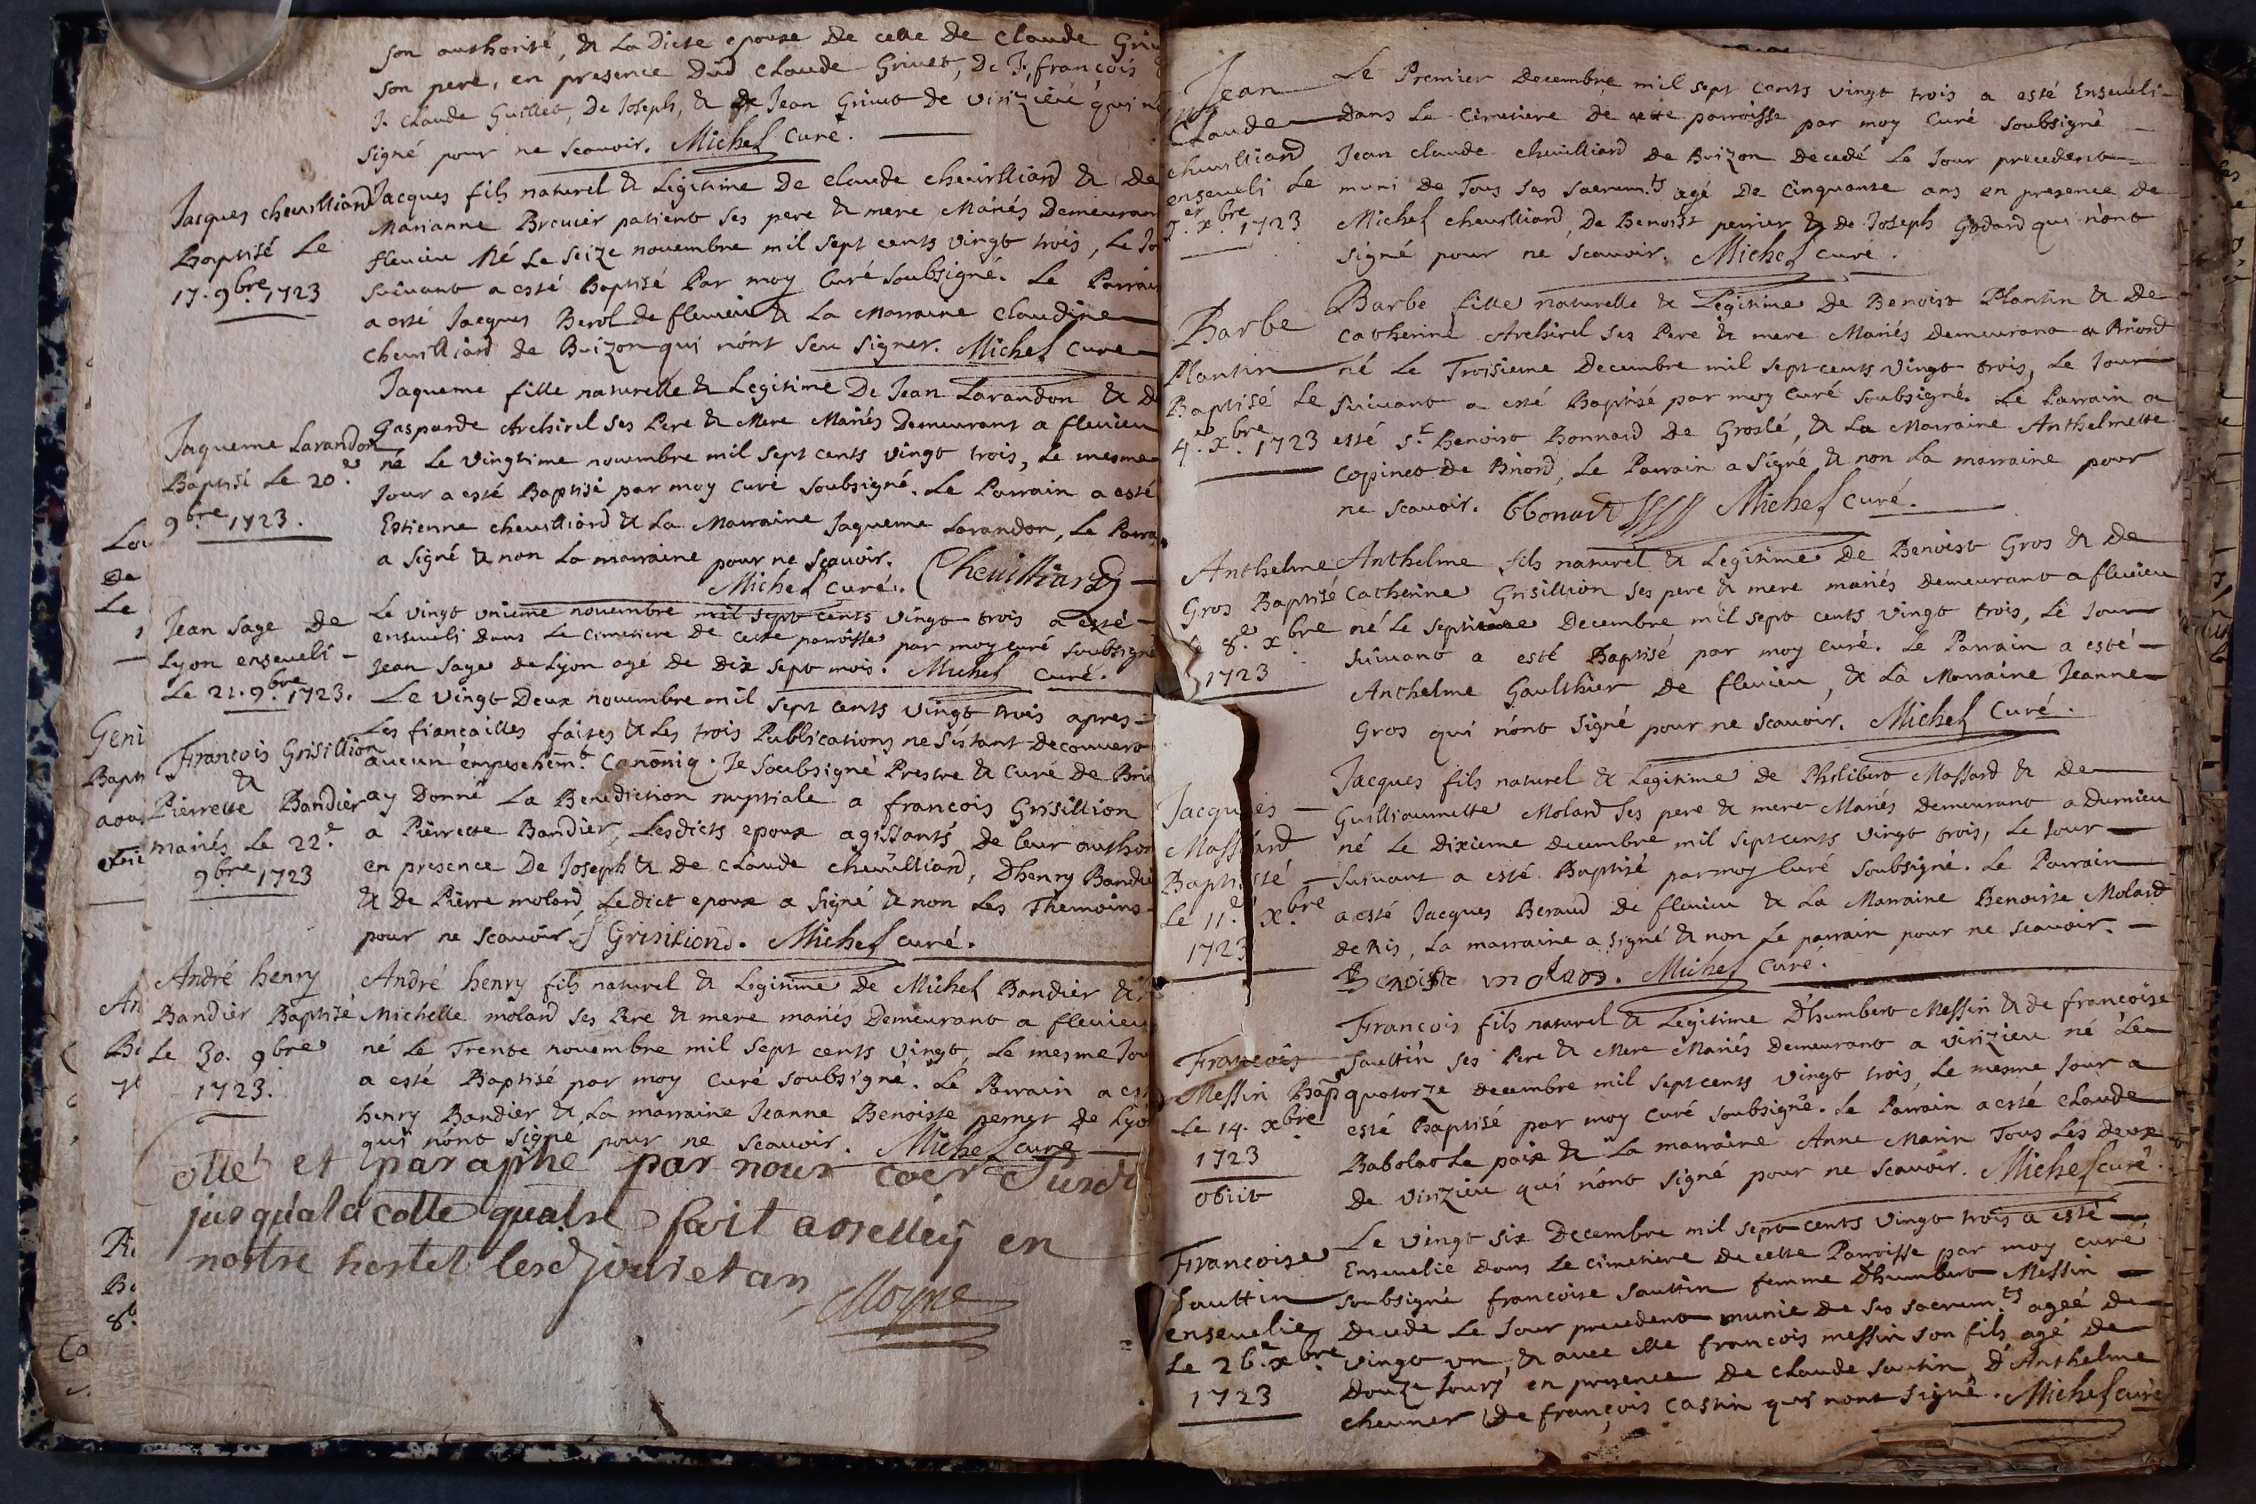 son authorité, & La Dicte epouse De celle de Claude
son pere, en presence Dud Claude Grivet, De J. françois
J. Claude Guillet, De Joseph, & de Jean Grivet de virizieu qui
signé pour ne scavoir. Michel Curé.
Jacques chevilliard
Baptisé Le
17. 9bre 1723
Jacques fils naturel & Legitime De Claude chevilliard & De
Marianne patient ses pere & mere Mariés Demeurant
flevieu Né Le seize novembre mil sept cents vingt trois, Le
suivant a esté Baptisé Par moy Curé soubsigné. Le Parrain
a esté Jacques Berol de flevieu & La Marraine Claudine
chevilliard de Buizon qui n'ont seu signer. Michel Curé
Jaqueme Larandon
Baptisé Le 20.e
9bre 1723.
Jaqueme fille naturelle & Legitime De Jean Larandon & De
Gasparde Archirel ses Pere & Mere Mariés Demeurant a flevieu
né Le vingtime novembre mil sept cents vingt trois, Le mesme
Jour a esté Baptisé par moy curé soubsigné. Le Parrain a esté
Estienne chevilliard & La Marraine Jaqueme Larandon, Le
a signé & non La marraine pour ne scavoir.
Michel Curé. Chevilliard
Jean sage De
Lyon enseveli
Le 21. 9bre 1723.
Le vingt unieme novembre mil sept cents vingt trois a esté
enseveli dans Le cimetiere de cette parroisse par moy curé soubsigné
Jean sage de Lyon agé de Dix sept mois. Michel Curé.
François Grisillion
&
Pierrette Bandier
mariés Le 22.e
9bre 1723
Le vingt Deux novembre mil sept cents vingt trois apres
Les fiançailles faites & Les trois Publications ne s'estant Decouvert
aucun empeschem.t Canoniq. Je soubsigné Prestre & Curé de
ay Donné La Benediction nuptiale a françois Grisillion
a Pierrette Bandier, Lesdicts epoux agissants de leur
en presence De Joseph & De Claude chevilliard, D'henry
& De Pierre molard, Ledict epoux a signé & non Les Themoins
pour ne scavoir. Grisiliond. Michel curé.
André henry
Bandier Baptisé
Le 30. 9bre
1723.
André henry fils naturel & Legitime De Michel Bandier &
Michelle molard ses Pere & mere mariés Demeurant a flevieu
né Le Trente novembre mil sept cents vingt, Le mesme
a esté Baptisé par moy Curé soubsigné. Le Parrain a
henry Bandier & La marraine Jeanne Benoiste pernet de Lyon
qui n'ont signé pour ne scavoir. Michel curé
et paraphé par nous
jusqu'a la cotte quatre fait a en
nostre hostel lesd jour et an
Moyne
Jean
Claude
chevilliard
enseveli Le
1.er xbre 1723
Le Premier Decembre mil sept cents vingt trois a esté Enseveli
dans Le Cimetiere de cette parroisse par moy Curé soubsigné
Jean claude chevilliard de Buizon Decedé Le Jour precedent
muni de Tous ses sacrem.ts agé De Cinquante ans en presence de
Michel chevilliard, De Benoist perrier & de Joseph Godard qui n'ont
signé pour ne scavoir. Michel curé.
Barbe
Plantin
Baptisé Le
4.e xbre 1723
Barbe fille naturelle & Legitime De Benoist Plantin & De
Catherine Archirel ses Pere & mere Mariés demeurant a Briord
né Le Troisieme Decembre mil sept cents vingt trois, Le Jour
suivant a esté Baptisé par moy Curé soubsigné. Le Parrain a
esté s.r Benoist Bonnard De Groslé, & La Marraine Anthelmette
Copinet De Briord, Le Parrain a signé & non La marraine pour
ne scavoir. Michel Curé.
Anthelme
Gros Baptisé
8.e xbre
1723
Anthelme fils naturel & Legitime De Benoist Gros & De
Catherine Grisillion ses pere & mere mariés demeurant a flevieu
né Le septieme Decembre mil sept cents vingt trois, Le Jour
suivant a esté Baptisé par moy Curé. Le Parrain a esté
Anthelme Gaulthier De flevieu, & La Marraine Jeanne
Gros qui n'ont signé pour ne scavoir. Michel Curé.
Jacques
Massard
Baptisté
Le 11.e xbre
1723
Jacques fils naturel & Legitime de Philibert Massard & De
Guilliaumette Molard ses pere & mere Mariés demeurant a Dumieu
né Le Dixieme Decembre mil sept cents vingt trois, Le Jour
suivant a esté Baptisé par moy Curé soubsigné. Le Parrain
a esté Jacques Beraud De flevieu & La Marraine Benoiste Molard
de Ris, La marraine a signé & non Le parrain pour ne scavoir.
Benoiste molard. Michel Curé.
François
Messin Bap
Le 14. xbre
1723
obiit
François fils naturel & Legitime D'humbert Messin & de françoise
Sauttin ses Pere & Mere Mariés Demeurant a virizieu né Le
quatorze Decembre mil sept cents vingt trois, Le mesme Jour a
esté Baptisé par moy curé soubsigné. Le Parrain a esté Claude
Babolat Le paix & La marraine Anne Marin Tous Les deux
De virizieu qui n'ont signé pour ne scavoir. Michel curé.
Françoise
Sauttin
ensevelie
Le 26.e xbre
1723
Le vingt six Decembre mil sept cents vingt trois a esté
Ensevelie dans Le cimetiere de cette Parroisse par moy curé
soubsigné françoise sauttin femme D'humbert Messin
decede Le Jour precedent munie de ses sacrem.ts ageé de
vingt un, & avec elle françois messin son fils agé De
Douze Jours en presence De Claude sautin, D'Anthelme
De françois castin qui n'ont signé. Michel curé